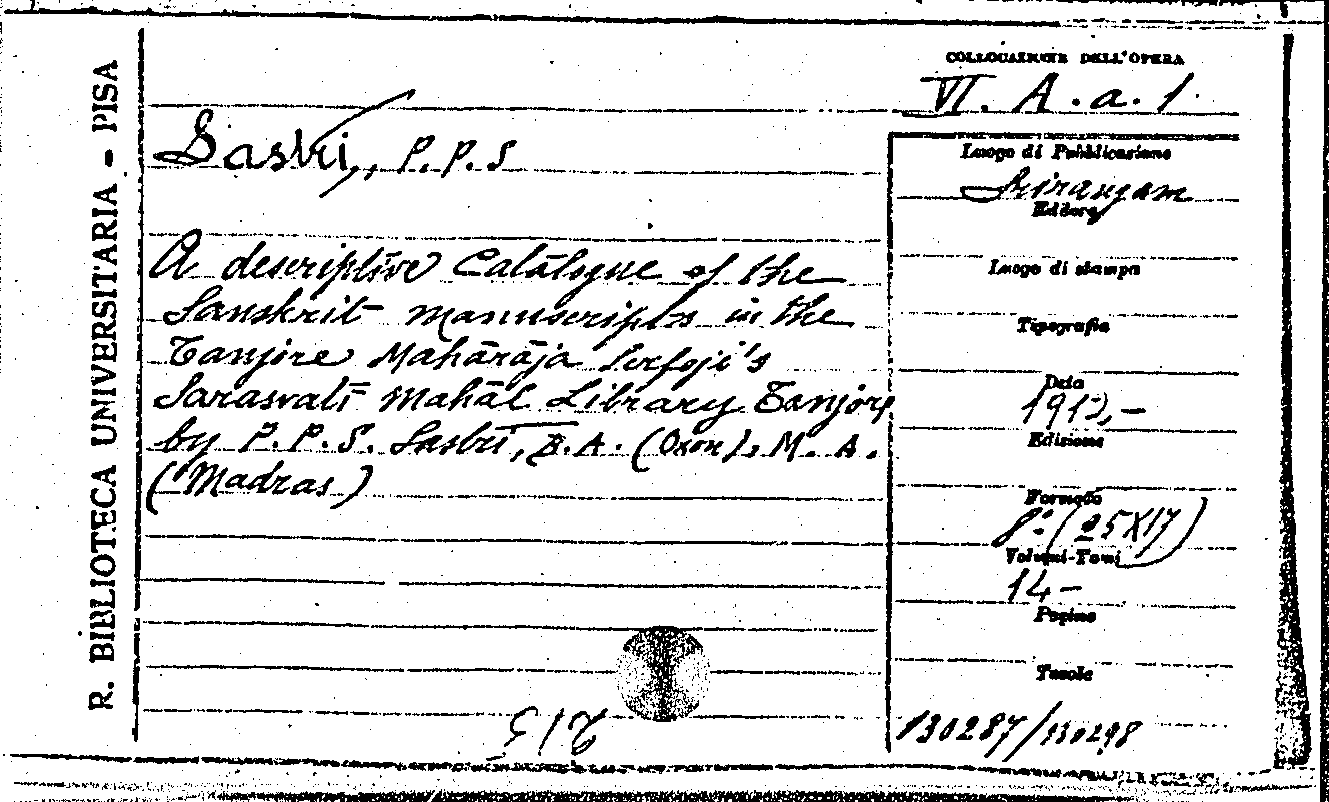 R. BIBLIOTECA UNIVERSITARIA - PISA
COLLOCAZIONE DELL'OPERA
VI. A. a. 1.
Sastri, P. P. S
A descriptive Catalogue of the
Sanskrit manuscripts in the
Tanjore Mahārāja Serfoji's
Sarasvatī Mahāl Library Tanjore
by P. P. S. Sastri, B. A. (Oxon), M. A.
(Madras)
Luogo di Pubblicazione
Srirangam
Editore
Luogo di stampa
Tipografia
Data
Edizione
Formato
8.° (25X17)
Volumi-Tomi
14-
Pagine
Tavole
130287/130298